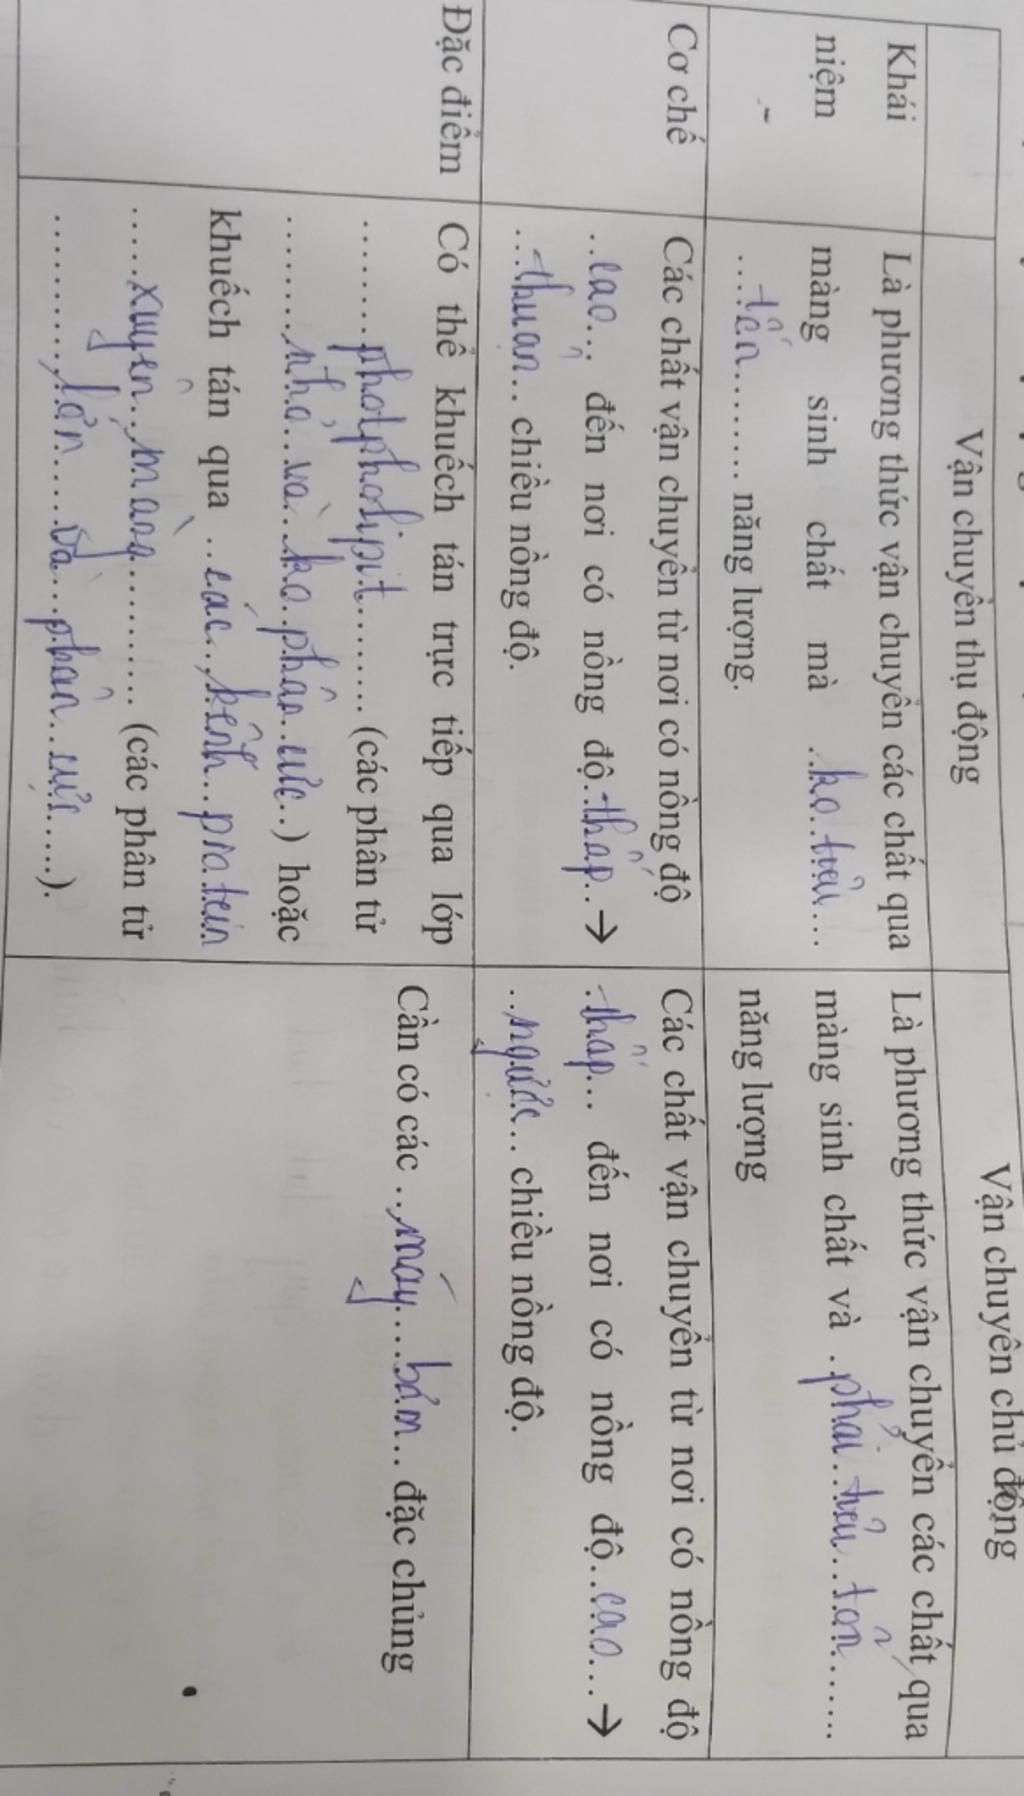 Vận chuyển thụ động
Vận chuyên chủ động
Khái
niệm
Là phương thức vận chuyển các chất qua
màng sinh chất mà ..ko..tiêu...
....tốn......... năng lượng.
Là phương thức vận chuyển các chất qua
màng sinh chất và .phải..tiêu..tốn.......
năng lượng
Cơ chế
Các chất vận chuyển từ nơi có nồng độ
...cao... đến nơi có nồng độ..thấp..→
...thuận.. chiều nồng độ.
Các chất vận chuyển từ nơi có nồng độ
..thấp... đến nơi có nồng độ..cao...→
...ngược... chiều nồng độ.
Đặc điểm
Có thể khuếch tán trực tiếp qua lớp
.........photpholipit......... (các phân tử
........nhỏ..và..ko.phân..cực..) hoặc
khuếch tán qua ..các..kênh..protein
.....xuyên..màng............ (các phân tử
...........lớn.....và...phân..cực.....).
Cần có các ..máy...bơm... đặc chủng